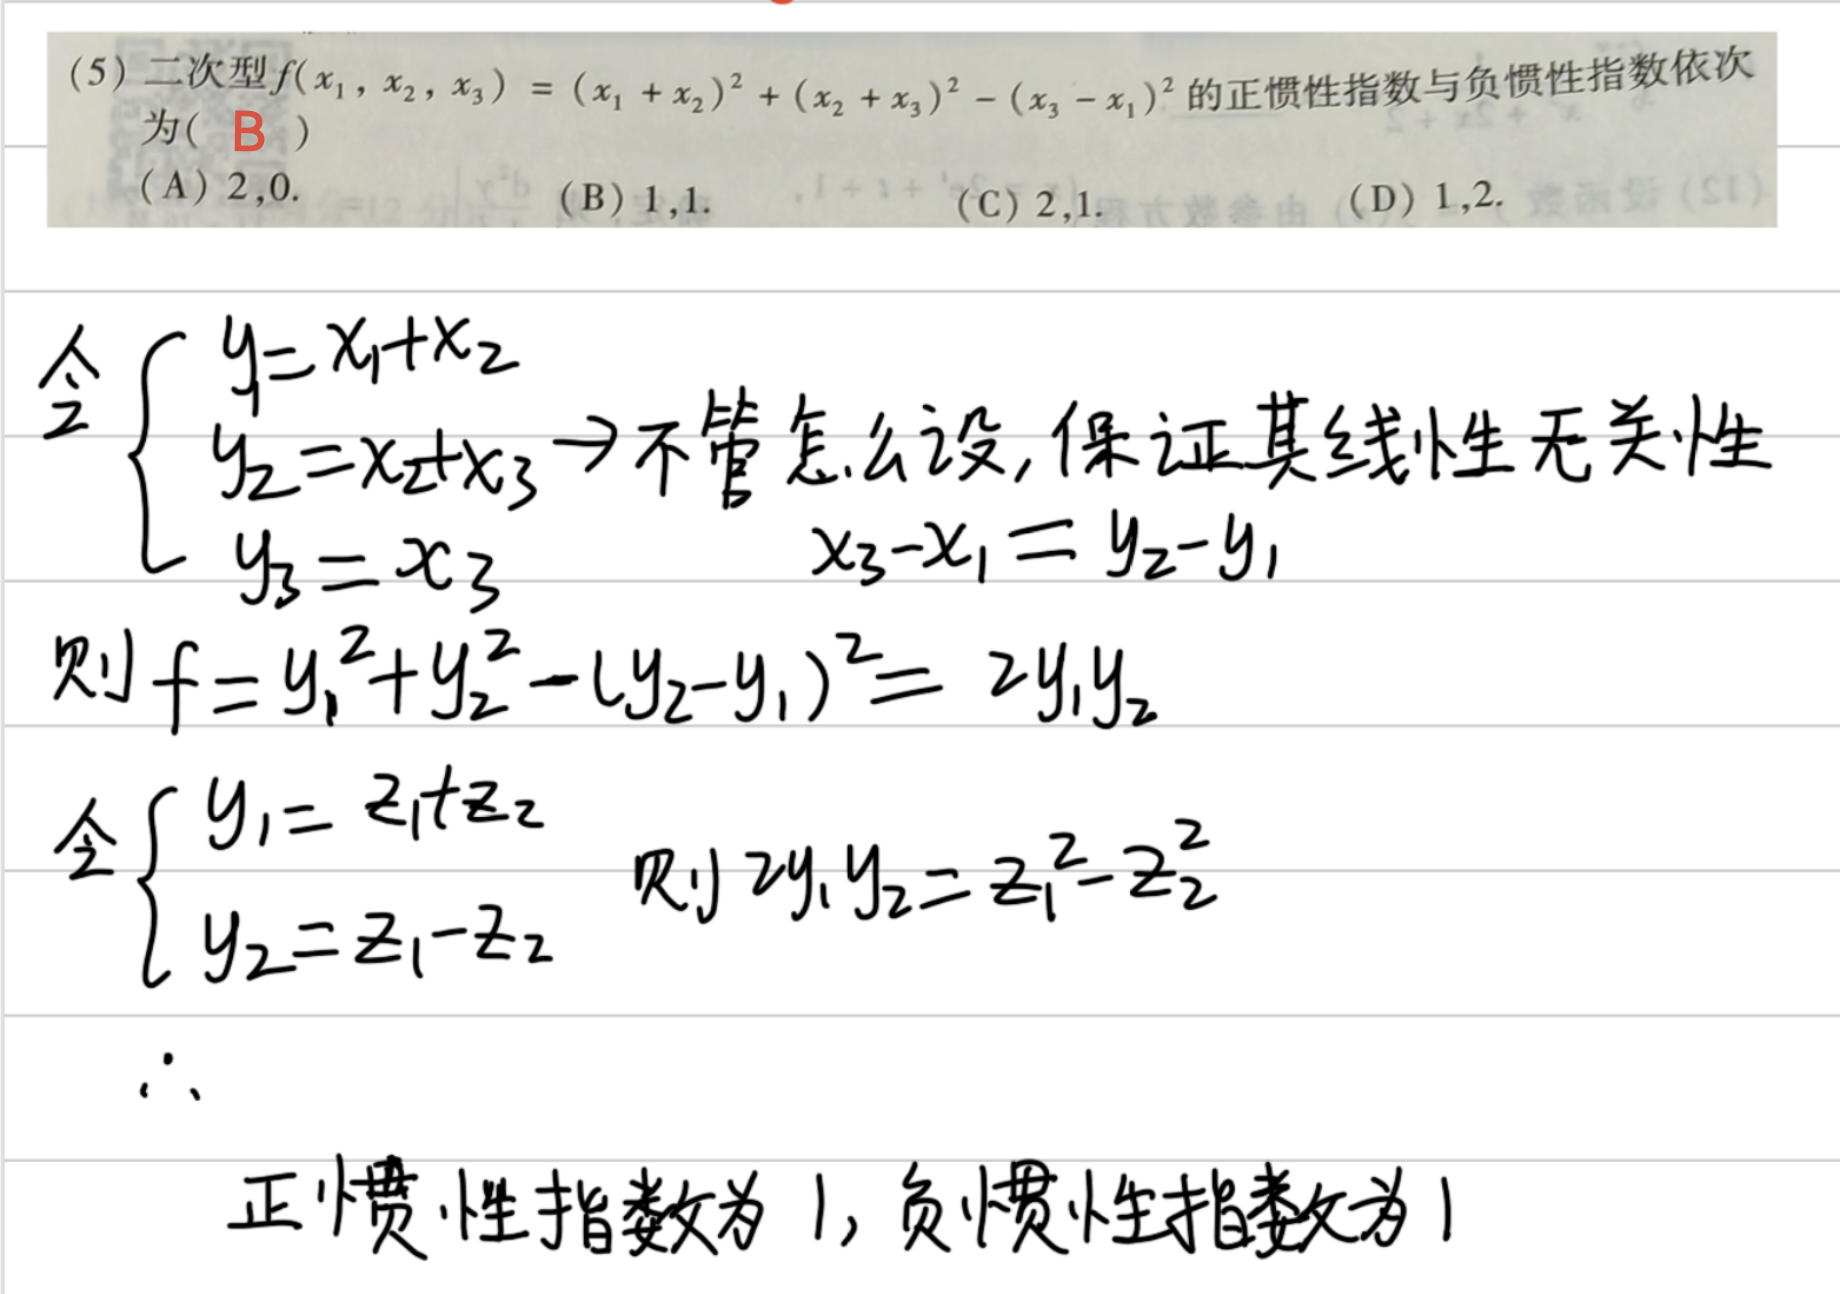 (5) 二次型f(x₁, x₂, x₃) = (x₁ + x₂)² + (x₂ + x₃)² − (x₃ − x₁)² 的正惯性指数与负惯性指数依次
为( B )
(A) 2,0. (B) 1,1. (C) 2,1. (D) 1,2.
令 { y₁ = x₁+x₂
y₂ = x₂+x₃ → 不管怎么设, 保证其线性无关性
y₃ = x₃ x₃-x₁ = y₂-y₁
则 f = y₁²+y₂²-(y₂-y₁)² = 2y₁y₂
令 { y₁ = z₁+z₂
y₂ = z₁-z₂ 则 2y₁y₂ = z₁²-z₂²
∴
正惯性指数为1, 负惯性指数为1